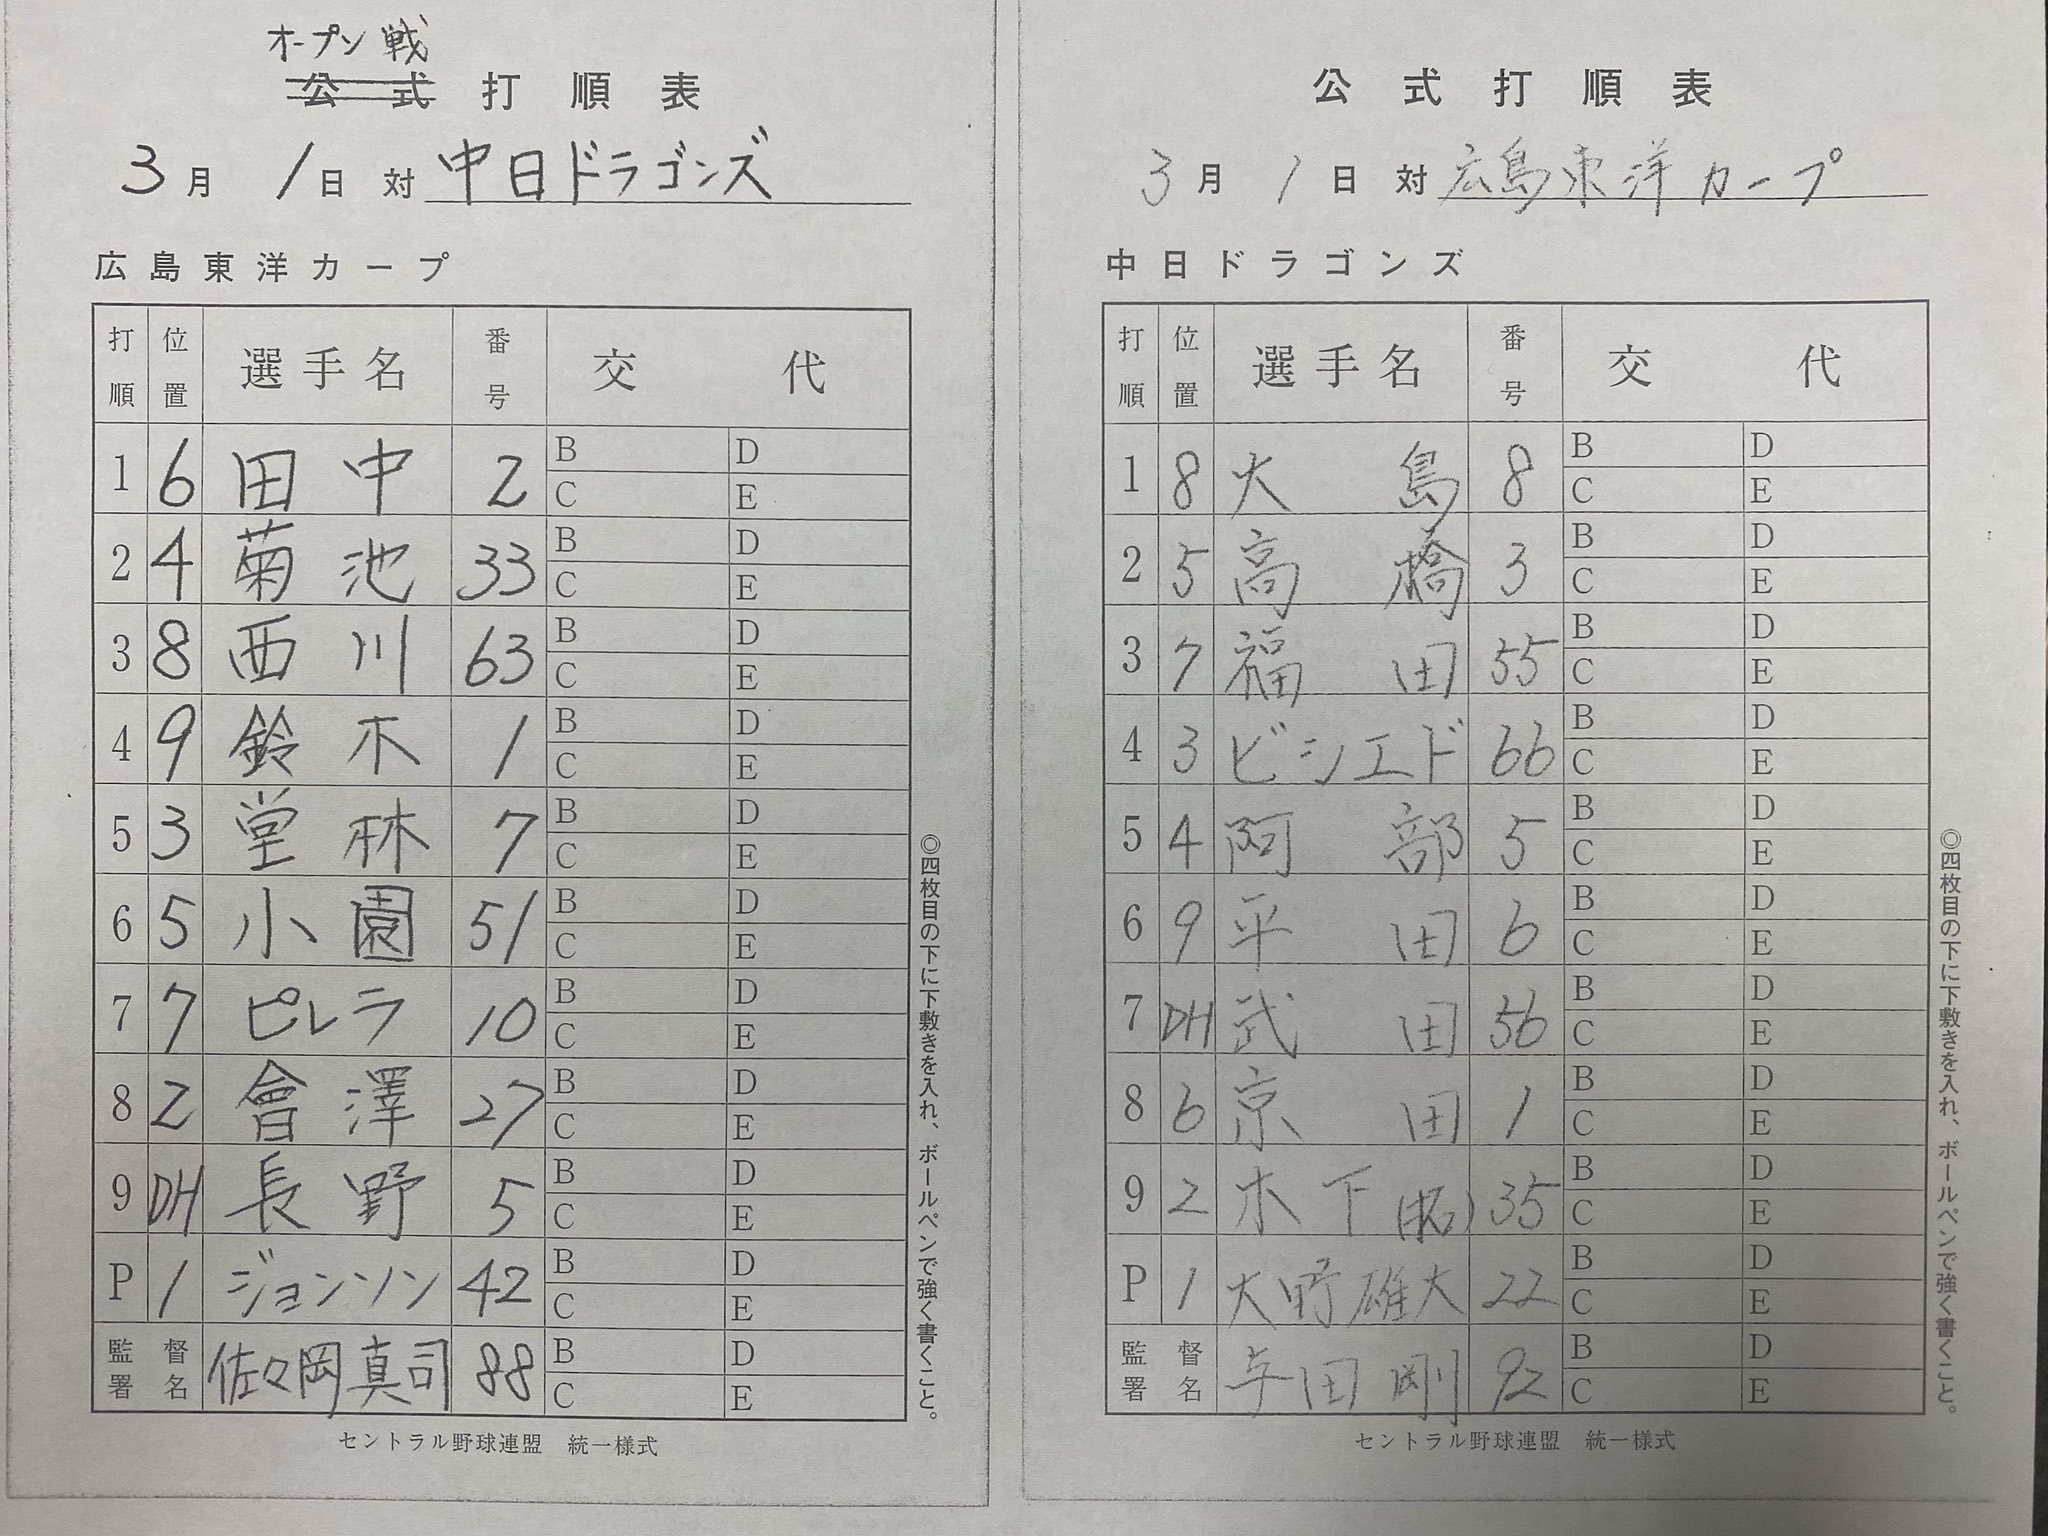 オープン戦
公式打順表
3月 1日 対 中日ドラゴンズ
広島東洋カープ
打順 位置 選手名 番号 交代
1 6 田中 2 B D
C E
2 4 菊池 33 B D
C E
3 8 西川 63 B D
C E
4 9 鈴木 1 B D
C E
5 3 堂林 7 B D
C E
6 5 小園 51 B D
C E
7 7 ピレラ 10 B D
C E
8 2 會澤 27 B D
C E
9 DH 長野 5 B D
C E
P 1 ジョンソン 42 B D
C E
監督署名 佐々岡真司 88 B D
C E
◎四枚目の下に下敷きを入れ、ボールペンで強く書くこと。
セントラル野球連盟 統一様式
公式打順表
3月 1日 対 広島東洋カープ
中日ドラゴンズ
打順 位置 選手名 番号 交代
1 8 大島 8 B D
C E
2 5 高橋 3 B D
C E
3 7 福田 55 B D
C E
4 3 ビシエド 66 B D
C E
5 4 阿部 5 B D
C E
6 9 平田 6 B D
C E
7 DH 武田 56 B D
C E
8 6 京田 1 B D
C E
9 2 木下(拓) 35 B D
C E
P 1 大野雄大 22 B D
C E
監督署名 与田剛 92 B D
C E
◎四枚目の下に下敷きを入れ、ボールペンで強く書くこと。
セントラル野球連盟 統一様式